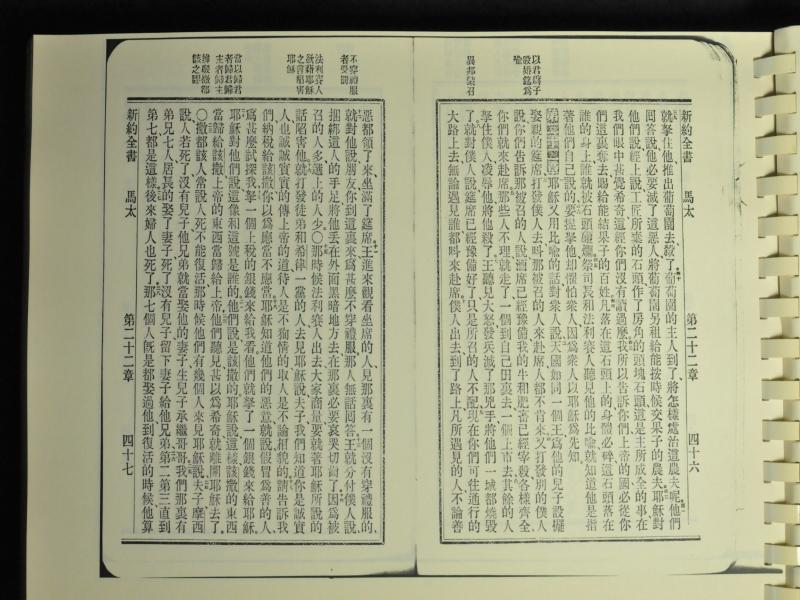 新約全書 馬太 第二十二章 四十六
就拏住他推出葡萄園去殺了葡萄園的主人到了將怎樣處治這農夫呢他們
回答說他必要滅了這惡人將葡萄園另租給能按時候交果子的農夫耶穌對
他們說經上說工匠所棄的石頭作了房角的頭塊石頭這是主所成全的事在
我們眼中甚覺希奇這經你們沒有讀過麼我所以告訴你們上帝的國必從你
們這裏奪去賜給能結果子的百姓凡落在這石頭上的身體必碎這石頭落在
誰的身上誰就被石頭 祭司長和法利賽人聽見他的比喻就知道他是指
著他們自己說的要捉拏他却懼怕衆人因爲衆人以耶穌爲先知
第二十二章 耶穌又用比喻的話對衆人說天國如同一個王爲他的兒子設擺
娶親的筵席打發僕人去呌那被召的人來赴席人都不肯來又打發別的僕人
說你們告訴那被召的人說酒席已經豫備我的牛和肥畜已經宰殺各樣齊全
你們就來赴席那些人不理就走了一個到自己田裏去一個上市去其餘的人
拏住僕人凌辱他將他殺了王聽見大怒發兵滅了那兇手將他們一城都燒毀
了就對僕人說筵席已經豫備好了只是所召的人不配現在你們可往通行的
大路上去無論遇見誰都呌來赴席僕人出去到了路上凡所遇見的人不論善
以君爲子
設婚筵爲
喻
異邦蒙召
惡都領了來坐滿了筵席王進來觀看坐席的人見那裏有一個沒有穿禮服的
就對他說朋友你到這裏來爲甚麼不穿禮服那人無話回答王就分付僕人說
捆綁這人的手足將他丟在外面黑暗地方去在那裏必要哀哭切齒了因爲被
召的人多選上的人少〇那時候法利賽人出去大家商量要就著耶穌所說的
話陷害他就打發徒弟和希律一黨的人去見耶穌說夫子我們知道你是誠實
人也誠誠實實的傳上帝的道待人是不徇情的取人是不論相貌的請告訴我
們納稅給該撒你以爲應當不應當耶穌知道他們的惡意就說假冒爲善的人
爲甚麼試探我拏一個上稅的銀錢來給我看他們就拏了一個銀錢來給耶穌
耶穌對他們說這像和這號是誰的他們說是該撒的耶穌說這樣該撒的東西
當歸給該撒上帝的東西當歸給上帝他們聽見甚以爲希奇就離開耶穌去了
〇撒都該人常說人死不能復活那時候他們有幾個人來見耶穌說夫子摩西
說人若死了沒有兒子他兄弟就當娶他的妻子生兒子承繼哥哥我們那裏有
弟兄七人居長的娶了妻子死了沒有兒子留下妻子給他兄弟第二第三直到
第七都是這樣後來婦人也死了那七個人旣是都娶過他到復活的時候他算
不穿禮服
者受罰
法利賽人
欲藉耶穌
之言陷害
耶穌
當以歸君
者歸君歸
主者歸主
新約全書 馬太 第二十二章 四十七